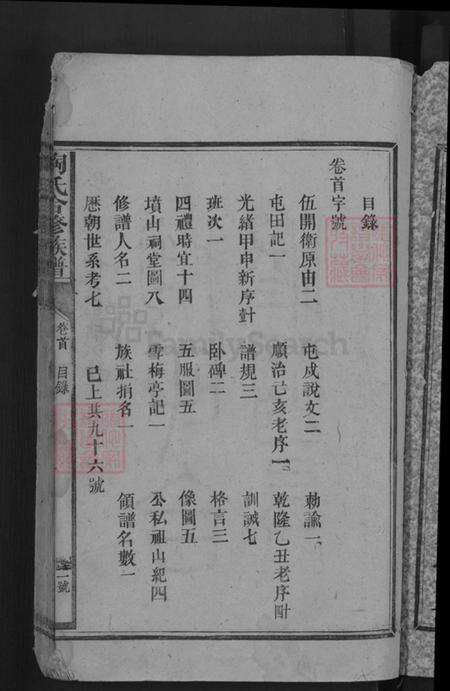 目錄
卷首字號
伍開衛原由二 屯戍說文二 勅諭一
屯田記一 順治己亥老序一 乾隆乙丑老序
光緒甲申新序 譜規三 訓誡七
班次一 卧碑二 格言三
四禮時宜十四 五服圖五 像圖五
墳山祠堂圖八 雪梅亭記一 公私祖山紀四
修譜人名二 族社捐名一 領譜名數一
歷朝世系考七 已上共九十六號
陶氏會修族譜
卷首 目錄
一號
FamilySearch